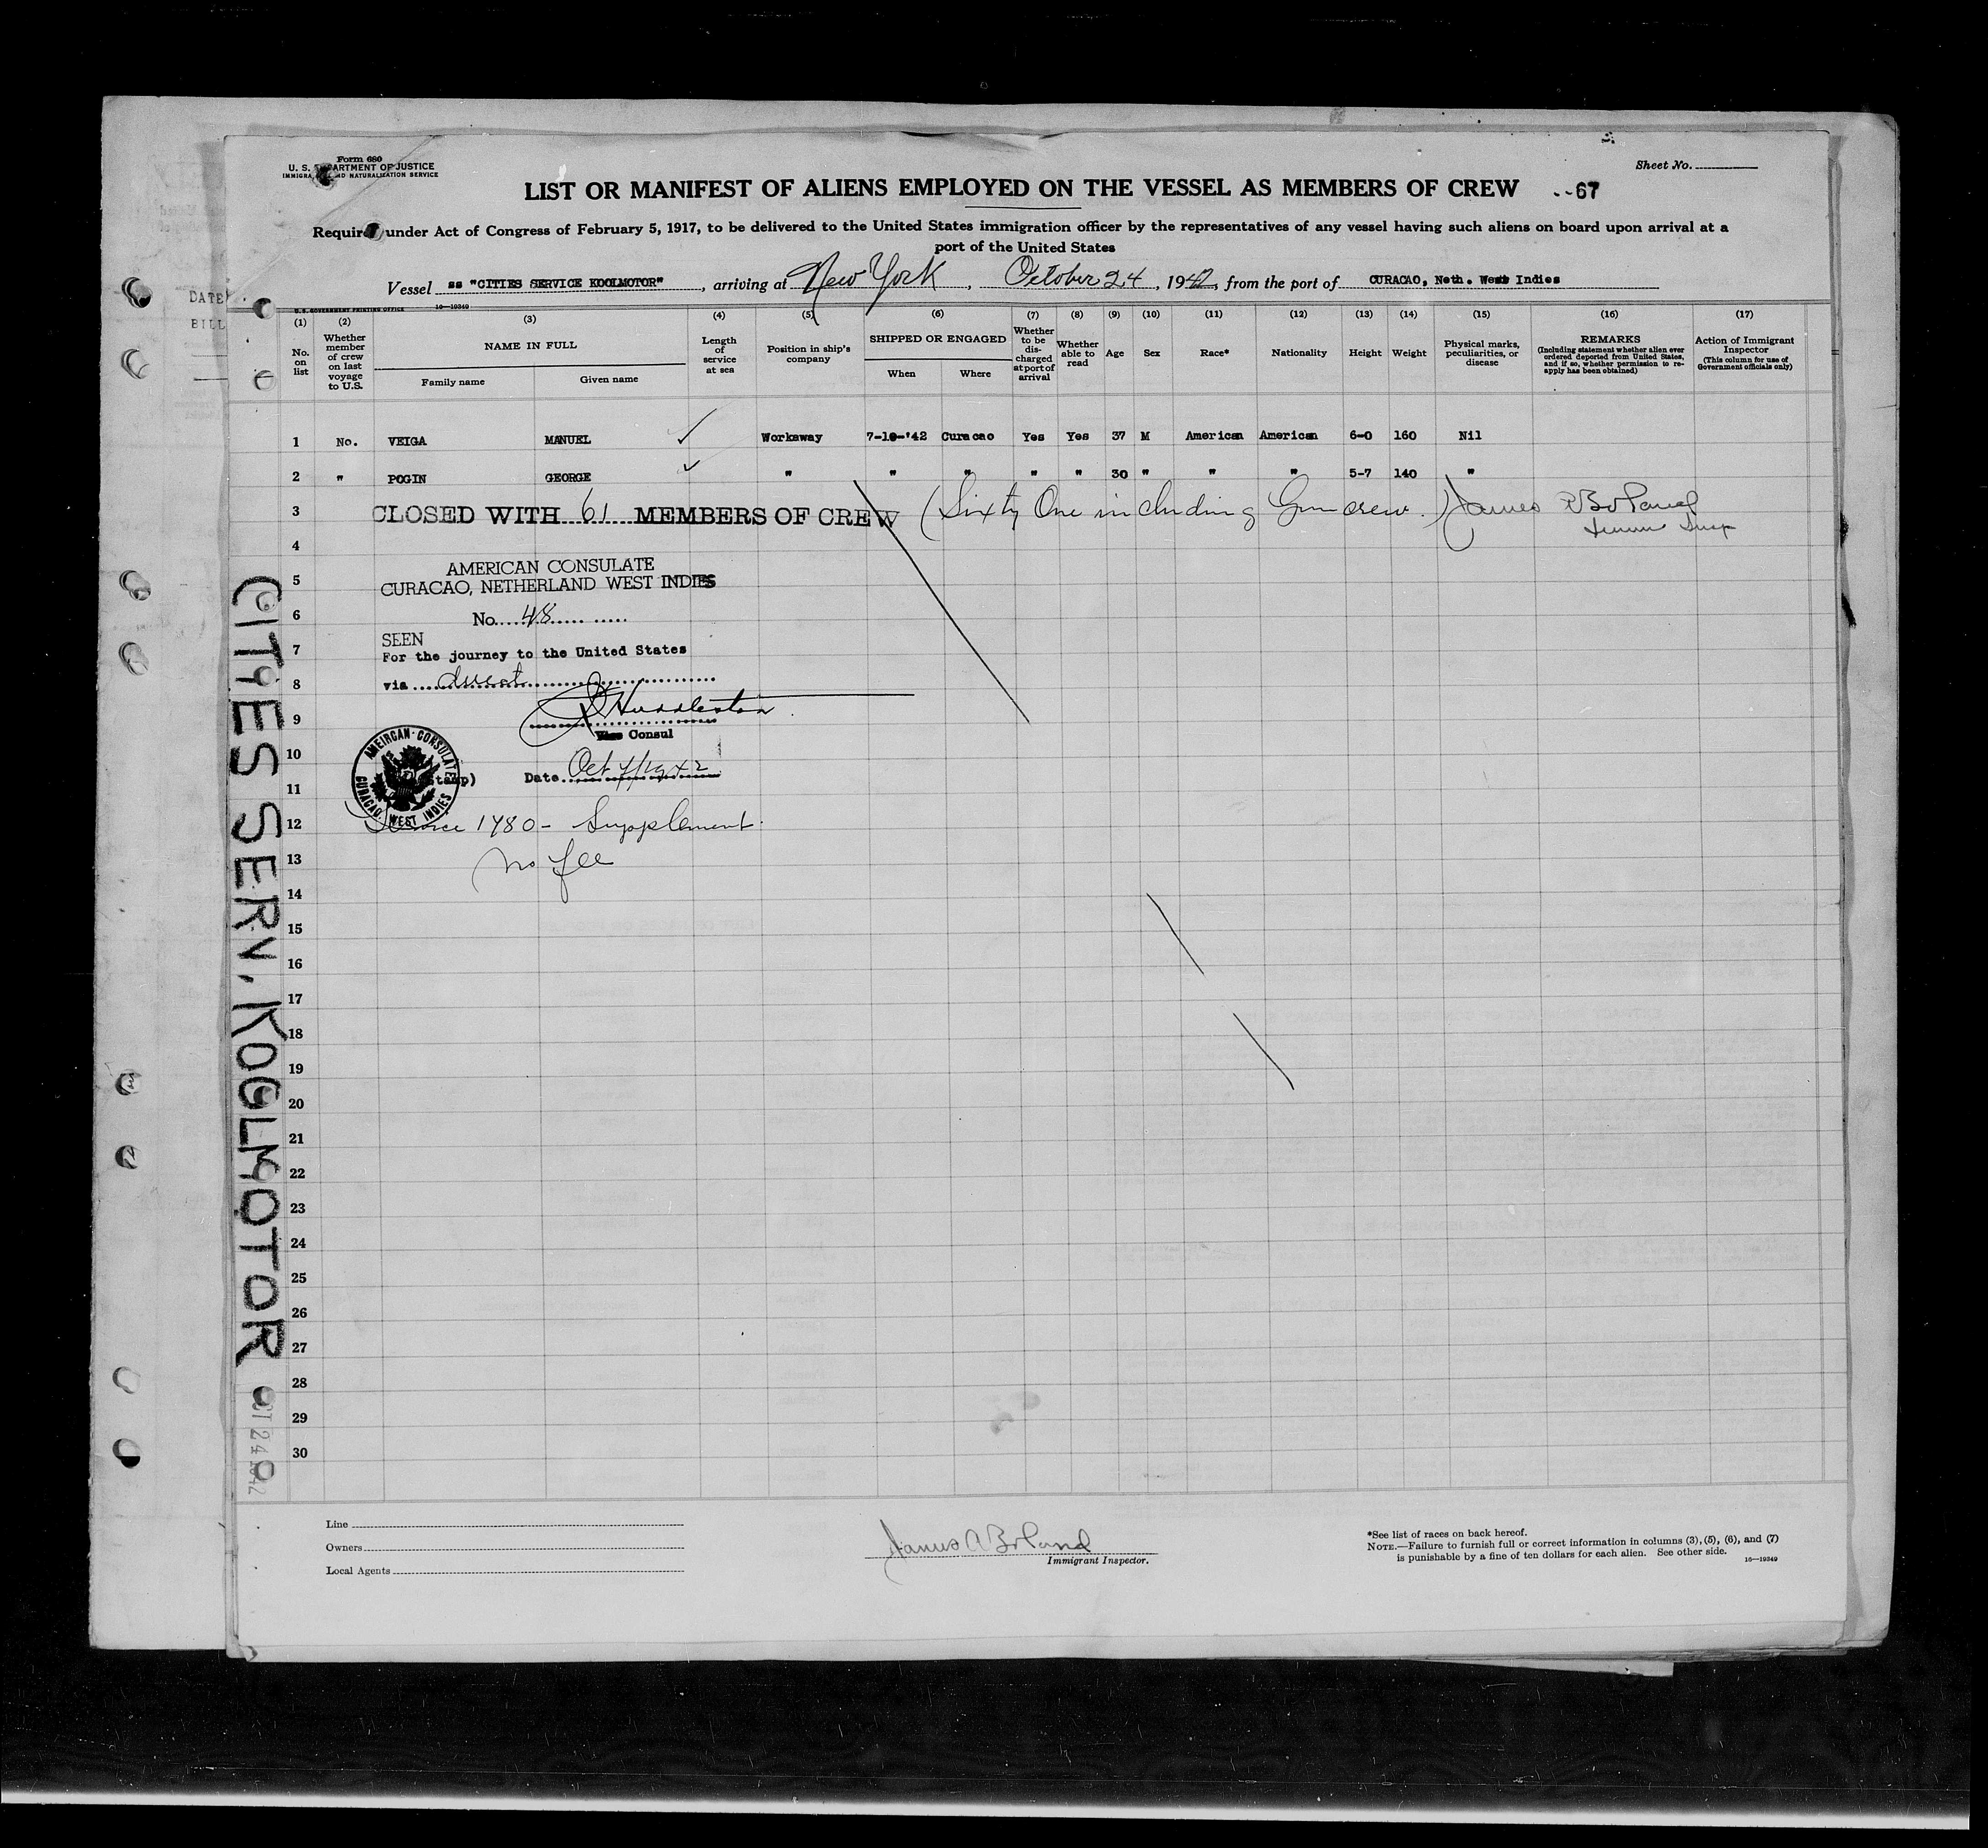 Form 680
U. S. DEPARTMENT OF JUSTICE
IMMIGRATION AND NATURALIZATION SERVICE
Sheet No.
LIST OR MANIFEST OF ALIENS EMPLOYED ON THE VESSEL AS MEMBERS OF CREW --67
Required under Act of Congress of February 5, 1917, to be delivered to the United States immigration officer by the representatives of any vessel having such aliens on board upon arrival at a
port of the United States
Vessel ss "CITIES SERVICE KOOLMOTOR", arriving at New York, October 24, 1942, from the port of CURACAO, Neth. West Indies
U.S. GOVERNMENT PRINTING OFFICE 16—19349
(1) (2) (3) (4) (5) (6) (7) (8) (9) (10) (11) (12) (13) (14) (15) (16) (17)
No. on list
Whether member of crew on last voyage to U.S.
NAME IN FULL
Family name
Given name
Length of service at sea
Position in ship's company
SHIPPED OR ENGAGED
When
Where
Whether to be discharged at port of arrival
Whether able to read
Age
Sex
Race*
Nationality
Height
Weight
Physical marks, peculiarities, or disease
REMARKS
(Including statement whether alien ever ordered deported from United States, and if so, whether permission to reapply has been obtained)
Action of Immigrant Inspector
(This column for use of Government officials only)
1 No. VEIGA MANUEL ✓ Workaway 7-10-'42 Curacao Yes Yes 37 M American American 6-0 160 Nil
2 " POGIN GEORGE ✓ " " " " " 30 " " " 5-7 140 "
3 CLOSED WITH 61 MEMBERS OF CREW (Sixty One including Gun crew.) James A Boland
4
AMERICAN CONSULATE
5 CURACAO, NETHERLAND WEST INDIES
6 No. 48
SEEN
7 For the journey to the United States
8 via direct
9 Huddleston
Vice Consul
10
AMERICAN CONSULATE CURACAO, WEST INDIES
(Stamp) Date Oct 7/1942
11
12 Service 1480 - Supplement
13 No fee
14
15
16
17
18
19
20
21
22
23
24
25
26
27
28
29
30
CITIES SERV. KOOLMOTOR
OCT 24 1942
DATE
BILL
Line
Owners
Local Agents
James A Boland
Immigrant Inspector.
*See list of races on back hereof.
NOTE.—Failure to furnish full or correct information in columns (3), (5), (6), and (7)
is punishable by a fine of ten dollars for each alien. See other side. 16—19349